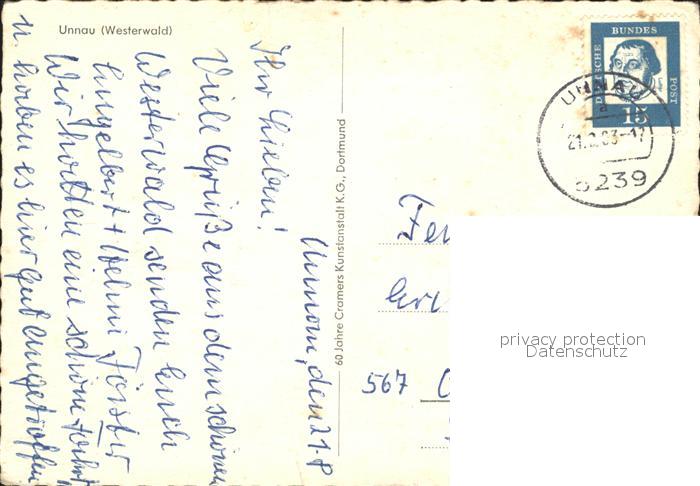 Unnau (Westerwald)
Unnau, den 21.8
Ihr Lieben!
Viele Grüße aus dem schönen
Westerwald senden Euch
Engelbert + Helmi Förster
Wir hatten eine schöne Fahrt
u. haben es hier gut angetroffen
60 Jahre Cramers Kunstanstalt K.G., Dortmund
DEUTSCHE BUNDES POST
15
UNNAU
5239
567
privacy protection
Datenschutz